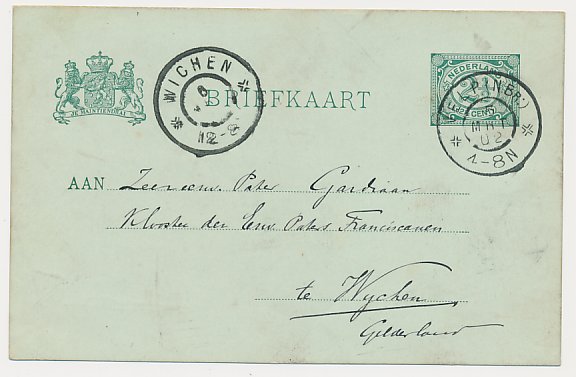 WICHEN
6
12-8
NEDERLAND
CENT
P(N.BR.)
5
02
4-8N
JE MAINTIENDRAI
BRIEFKAART
AAN Zeereerw. Pater Gardiaan
Klooster der Eerw. Paters Franciscanen
te Wychen
Gelderland